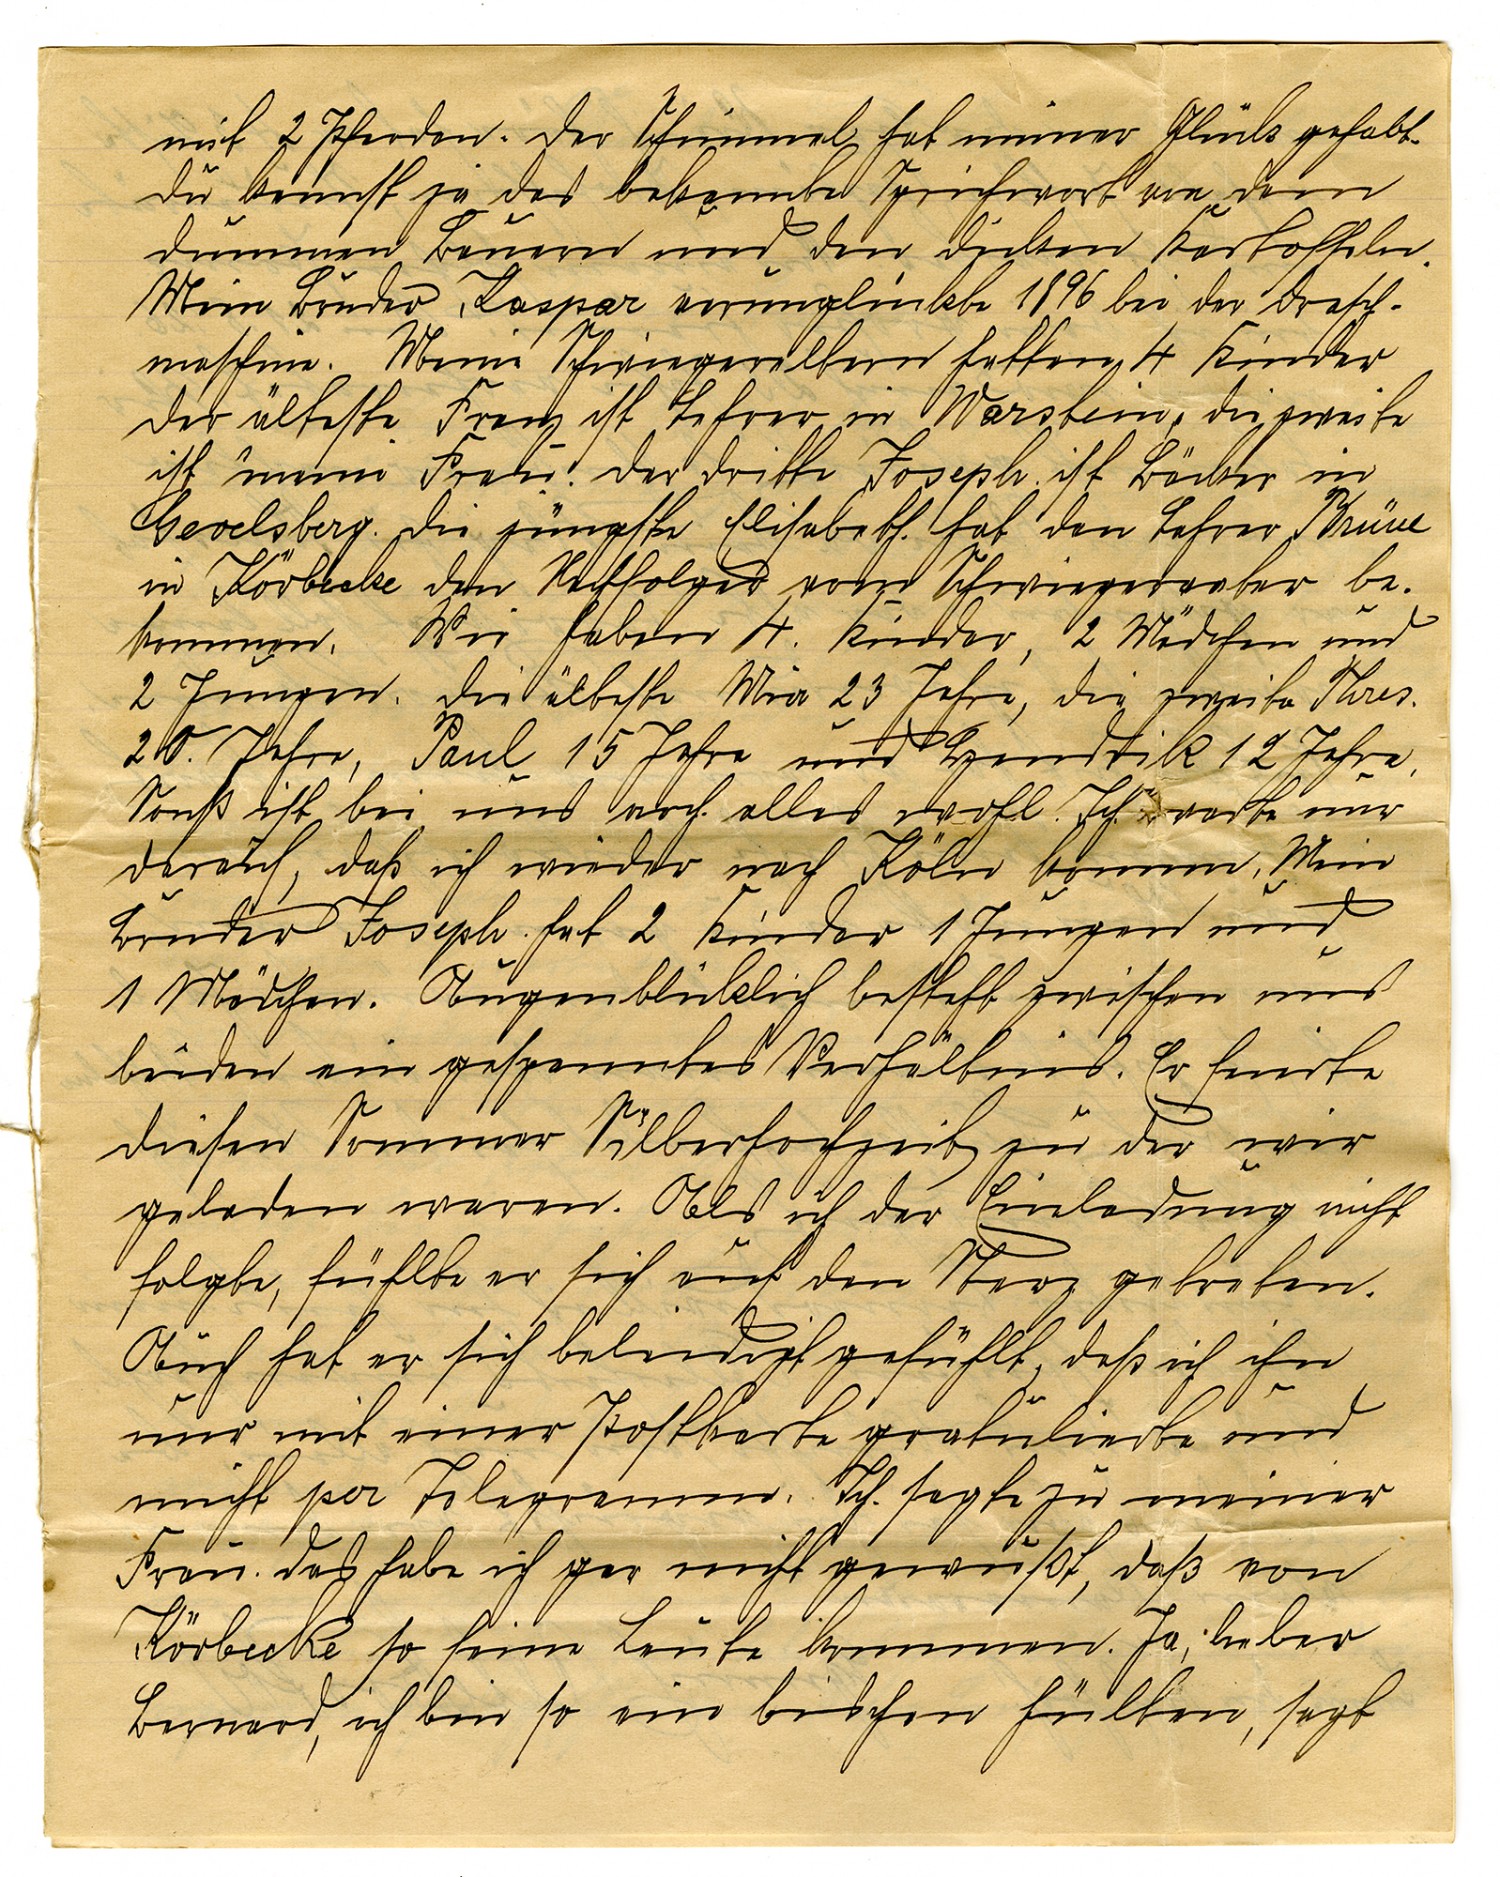 mit 2 Pferden. Der Schimmel hat immer Glück gehabt.
Du kennst ja das bekannte Sprichwort von dem
dummen Bauern und den dicken Kartoffeln.
Mein Bruder Kaspar verunglückte 1896 bei der Dresch-
maschine. Meine Schwiegereltern hatten 4 Kinder
der älteste Franz ist Lehrer in Warstein, die zweite
ist meine Frau. der dritte Joseph ist Bäcker in
Gevelsberg. die jüngste Elisabeth. hat den Lehrer Brüne
in Körbecke den Nachfolger vom Schwiegervater be-
kommen. Wir haben 4. Kinder, 2 Mädchen und
2 Jungen. die älteste Mia 23 Jahre, die zweite Thres.
20. Jahre, Paul 15 Jahre und Hendrik 12 Jahre.
Sonst ist bei uns noch alles wohl. Ich warte nur
darauf, daß ich wieder nach Köln komme. Mein
Bruder Joseph hat 2 Kinder 1 Jungen und
1 Mädchen. Augenblicklich besteht zwischen uns
beiden ein gespanntes Verhältnis. Er feierte
diesen Sommer Silberhochzeit zu der wir
geladen waren. Als ich der Einladung nicht
folgte, fühlte er sich auf den Sterz getreten.
Auch hat er sich beleidigt gefühlt, daß ich ihn
nur mit einer Postkarte gratulierte und
nicht per Telegramm. Ich sagte zu meiner
Frau. das habe ich gar nicht gewußt, daß von
Körbecke so feine Leute kommen. Ja, lieber
Bernard, ich bin so ein bischen, sagt